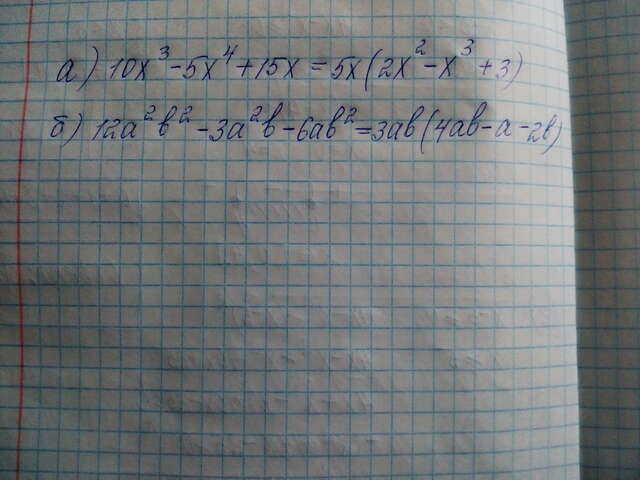 а) 10x³-5x⁴+15x=5x(2x²-x³+3)
б) 12a²b²-3a²b-6ab²=3ab(4ab-a-2b)